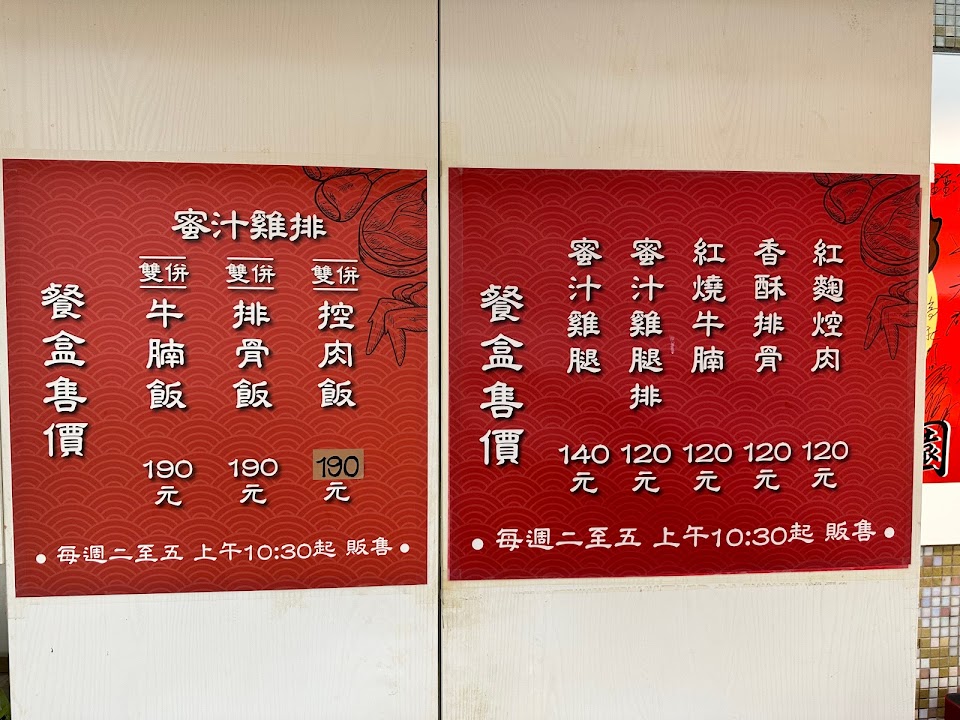 蜜汁雞排
餐盒售價
雙併
牛腩飯
190
元
雙併
排骨飯
190
元
雙併
控肉飯
190
元
• 每週二至五 上午10:30起 販售 •
餐盒售價
蜜汁雞腿
140
元
蜜汁雞腿排
120
元
紅燒牛腩
120
元
香酥排骨
120
元
紅麴焢肉
120
元
• 每週二至五 上午10:30起 販售 •